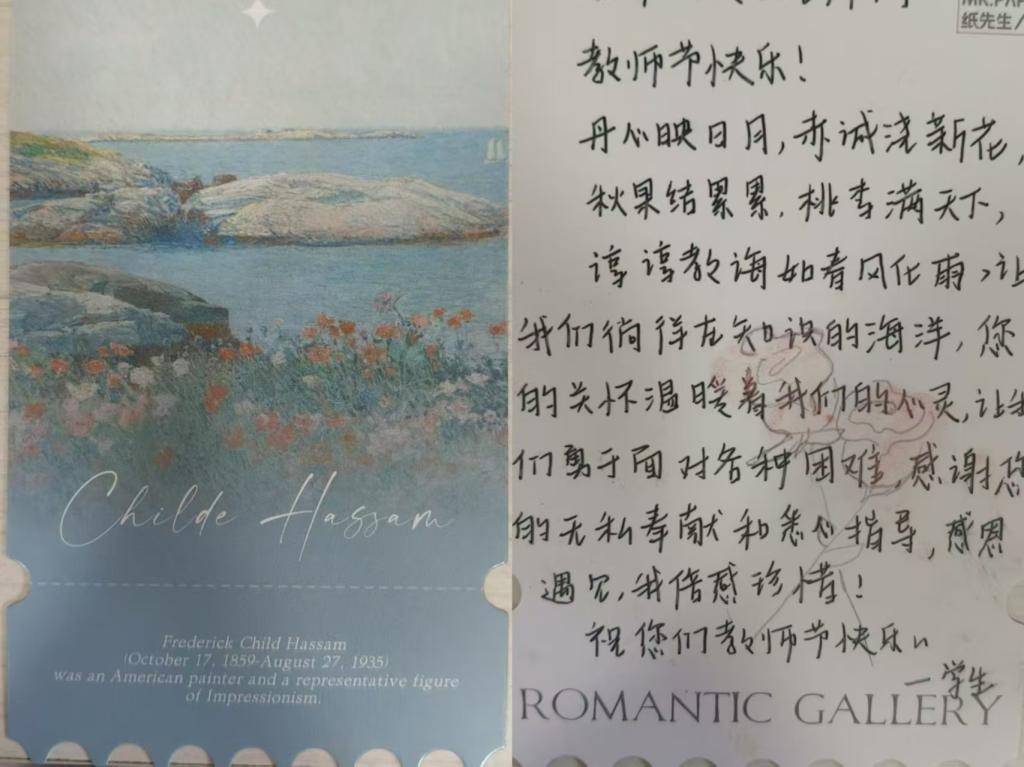 Childe Hassam
Frederick Child Hassam
(October 17, 1859-August 27, 1935)
was an American painter and a representative figure
of Impressionism.
MR.PAP
纸先生/
教师节快乐!
丹心映日月,赤诚浇新花,
秋果结累累,桃李满天下,
谆谆教诲如春风化雨,让
我们徜徉在知识的海洋,您
的关怀温暖着我们的心灵,让我
们勇于面对各种困难,感谢您
的无私奉献和悉心指导,感恩
遇见,我倍感珍惜!
祝您们教师节快乐~
一学生
ROMANTIC GALLERY